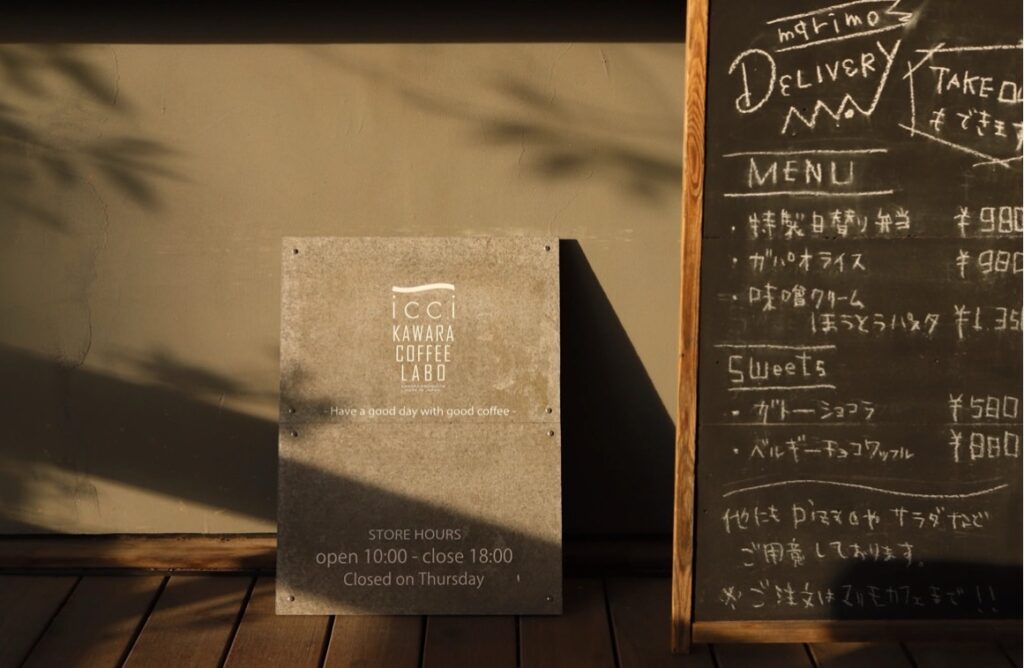 icci
KAWARA
COFFEE
LABO
- Have a good day with good coffee -
STORE HOURS
open 10:00 - close 18:00
Closed on Thursday
marimo
DELIVERY
TAKE OU
もできます
MENU
・特製日替り弁当 ¥980
・ガパオライス ¥980
・味噌クリーム
ほうとうパスタ ¥1.35
Sweets
・ガトーショコラ ¥580
・ベルギーチョコワッフル ¥880
他にも Pizzaや サラダなど
ご用意しております。
※ご注文はマリモカフェまで!!